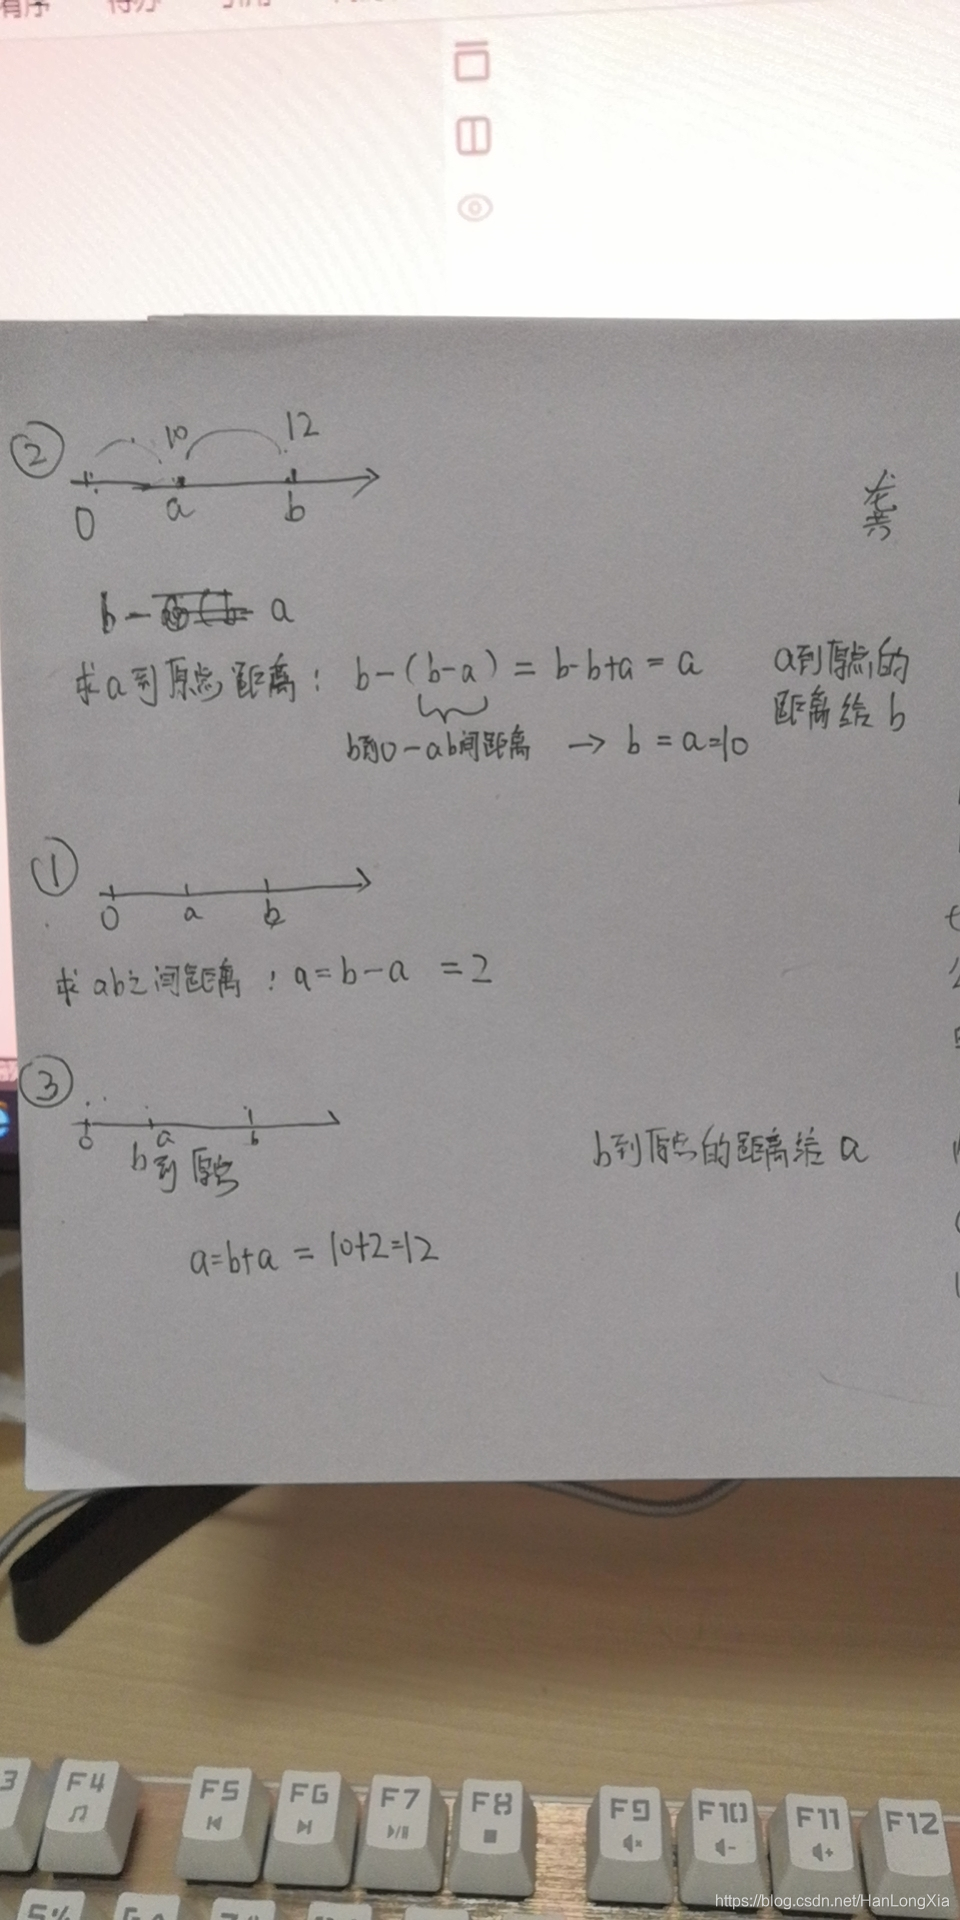 ② 10 12
0 a b
龚
b- a
求a到原点距离: b-(b-a) = b-b+a = a
a到原点的
距离给 b
b到0-ab间距离 → b = a=10
①
0 a b
求ab之间距离: a=b-a =2
③
0 a b
b到原点
b到原点的距离给a
a=b+a = 10+2=12
F4
F5
F6
F7
F8
F9
F10
F11
F12
5%
https://blog.csdn.net/HanLongXia